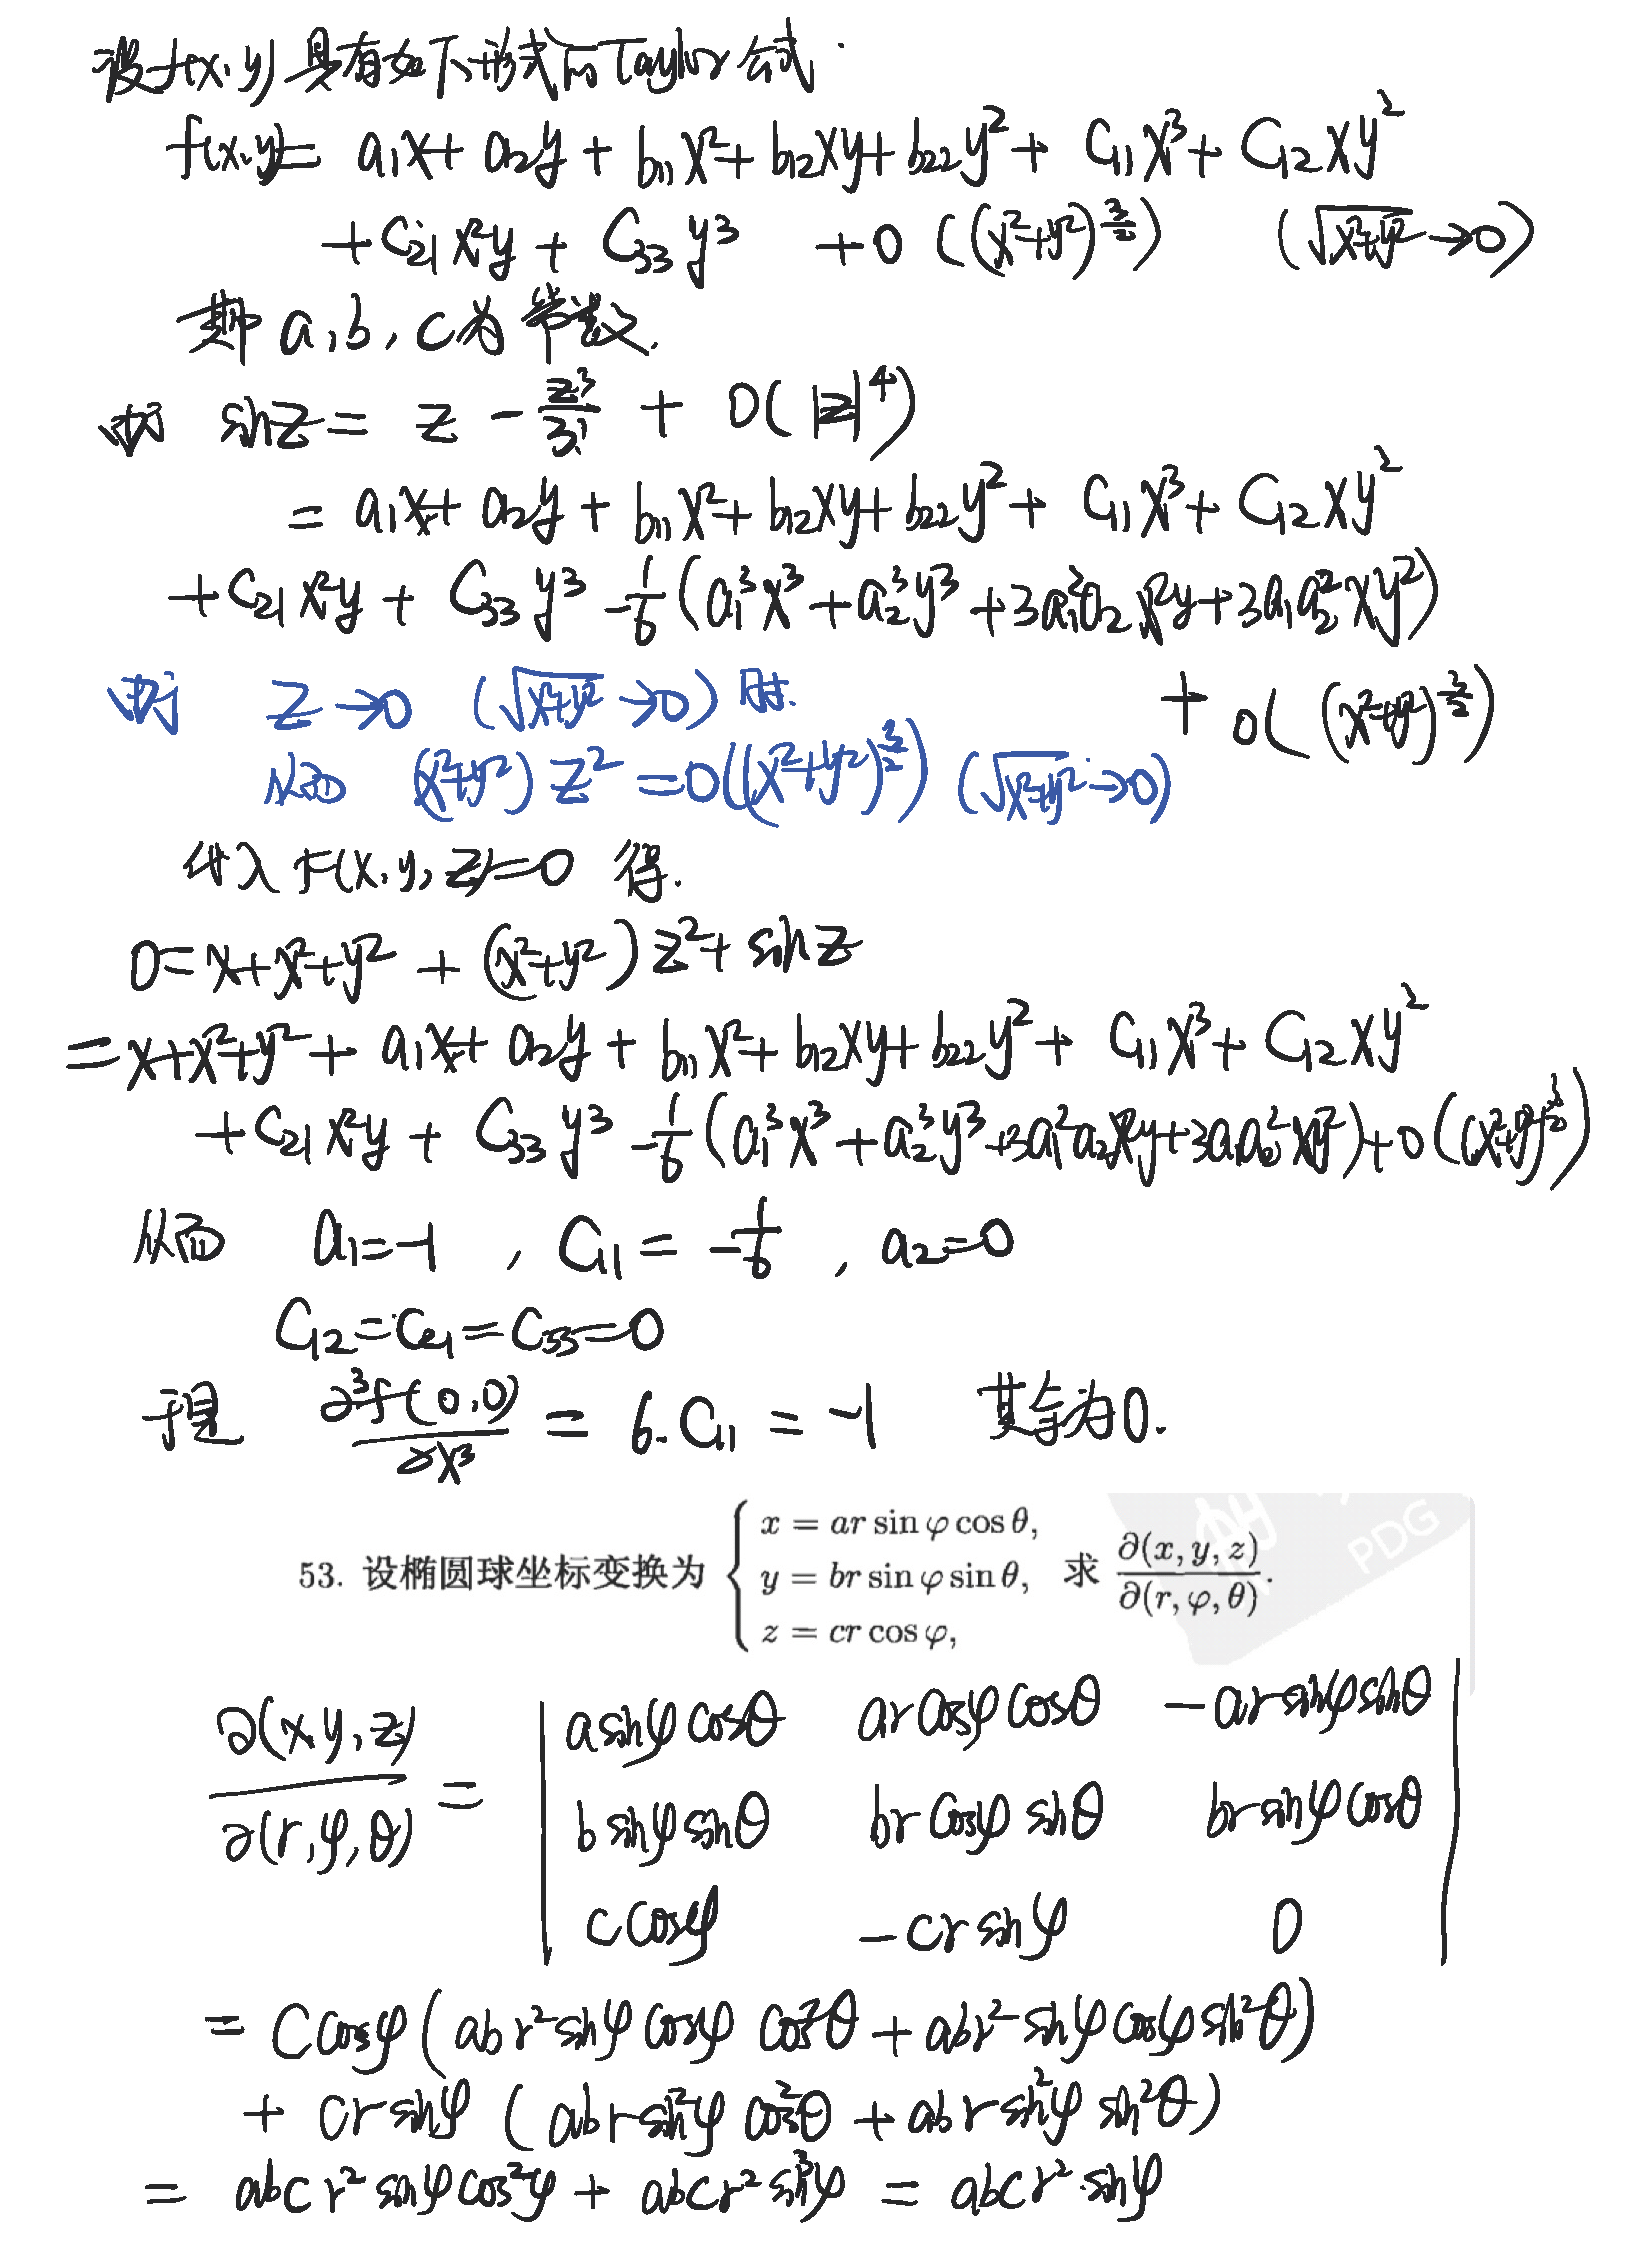 设f(x,y)具有如下形式的Taylor公式.
f(x,y)= a₁x+a₂y+b₁₁x²+b₁₂xy+b₂₂y²+C₁₁x³+C₁₂xy²
+C₂₁x²y+C₃₃y³ +o((x²+y²)^{3/2}) (√(x²+y²)→0)
其中a,b,c为常数.
由于 sinz= z - z³/3! + O(|z|⁴)
= a₁x+a₂y+b₁₁x²+b₁₂xy+b₂₂y²+C₁₁x³+C₁₂xy²
+C₂₁x²y+C₃₃y³ -1/6(a₁³x³+a₂³y³+3a₁²a₂x²y+3a₁a₂²xy²)
+o((x²+y²)^{3/2})
由于 z→0 (√(x²+y²)→0)时.
从而 (x²+y²)z²=o((x²+y²)^{3/2}) (√(x²+y²)→0)
代入F(x,y,z)=0 得.
0=x+x²+y²+(x²+y²)z²+sinz
=x+x²+y²+a₁x+a₂y+b₁₁x²+b₁₂xy+b₂₂y²+C₁₁x³+C₁₂xy²
+C₂₁x²y+C₃₃y³ -1/6(a₁³x³+a₂³y³+3a₁²a₂x²y+3a₁a₂²xy²)+o((x²+y²)^{3/2})
从而 a₁=-1 , C₁₁=-1/6 , a₂=0
C₁₂=C₂₁=C₃₃=0
于是 ∂³f(0,0)/∂x³ = 6·C₁₁ = -1 其余为0.
53. 设椭圆球坐标变换为 { x = ar sin φ cos θ, y = br sin φ sin θ, z = cr cos φ, 求 ∂(x, y, z)/∂(r, φ, θ).
PDG
∂(x,y,z)/∂(r,φ,θ) = | asinφcosθ arcosφcosθ -arsinφsinθ
bsinφsinθ brcosφsinθ brsinφcosθ
ccosφ -crsinφ 0 |
= Ccosφ(abr²sinφcosφcos²θ+abr²sinφcosφsin²θ)
+ crsinφ(abrsin²φcos²θ+abrsin²φsin²θ)
= abcr²sinφcos²φ + abcr²sin³φ = abcr²sinφ